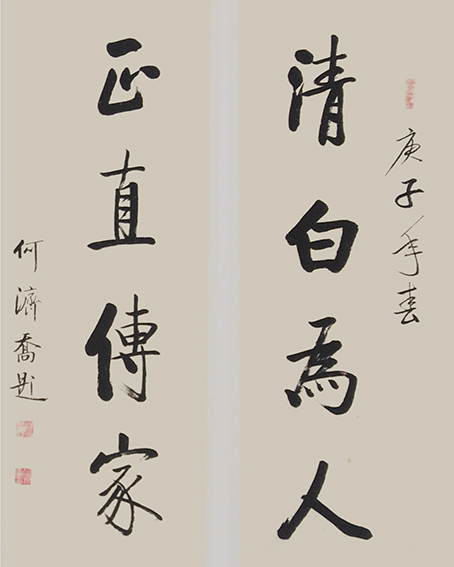 庚子年春
清白為人
正直傳家
何濟喬題